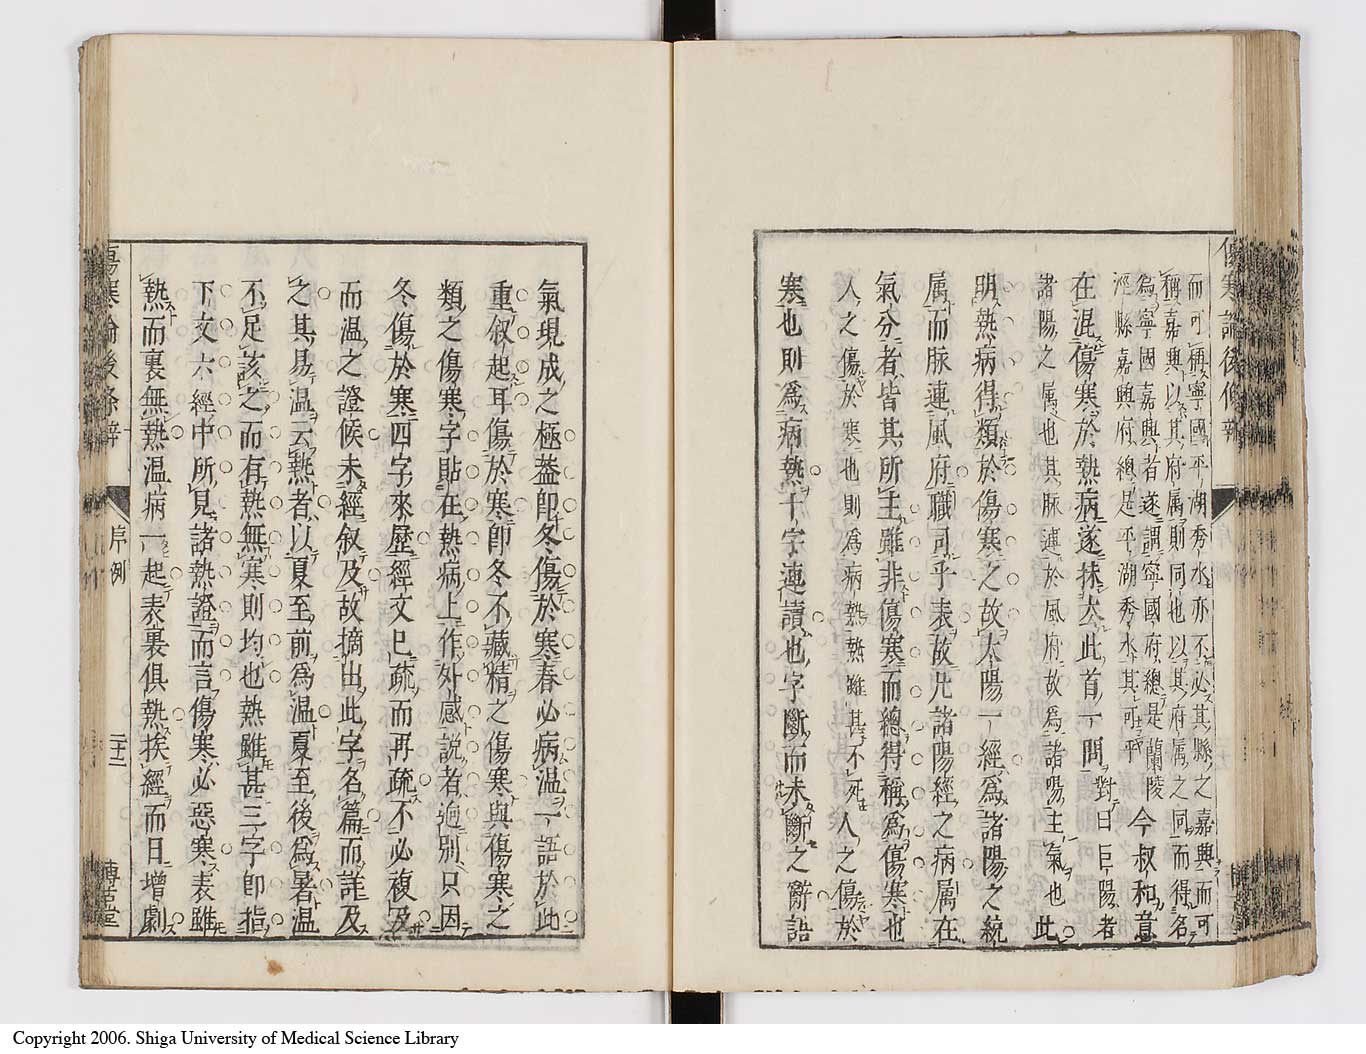 傷寒論後條辨
而可稱寧國平湖秀水亦不必其縣之嘉興而可
稱嘉興以其府属則同也以其府属之同而得名
為寧國嘉興者遂謂寧國府總是蘭陵
涇縣嘉興府總是平湖秀水其可乎
今叔和意
在混傷寒於熱病遂抹去此首一問對曰巨陽者
諸陽之属也其脉連於風府故為諸陽主氣也此
明熱病得類於傷寒之故太陽一經為諸陽之統
属而脉連風府職司乎表故凡諸陽經之病属在
氣分者皆其所主雖非傷寒而總得稱為傷寒也
人之傷於寒也則為病熱熱雖甚不死人之傷於
寒也則為病熱十字連讀也字斷而未斷之辭語
氣現成之極葢即冬傷於寒春必病温一語於此
重叙起耳傷於寒即冬不藏精之傷寒與傷寒之
類之傷寒字貼在熱病上作外感說者逈別只因
冬傷於寒四字來歷經文已疏而再疏不必複及
而温之證候未經叙及故摘出此字名篇而詳及
之其易温云熱者以夏至前為温夏至後為暑温
不足該之而有熱無寒則均也熱雖甚三字即指
下文六經中所見諸熱證而言傷寒必惡寒表雖
熱而裏無熱温病一起表裏俱熱挨經而日增劇
傷寒論後條辨
序例
二十二
博古堂
Copyright 2006. Shiga University of Medical Science Library